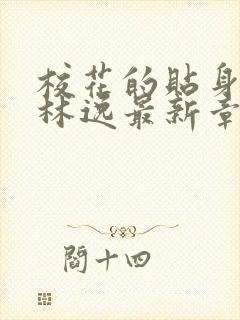 校花的贴身
林逸最新章
閻十四